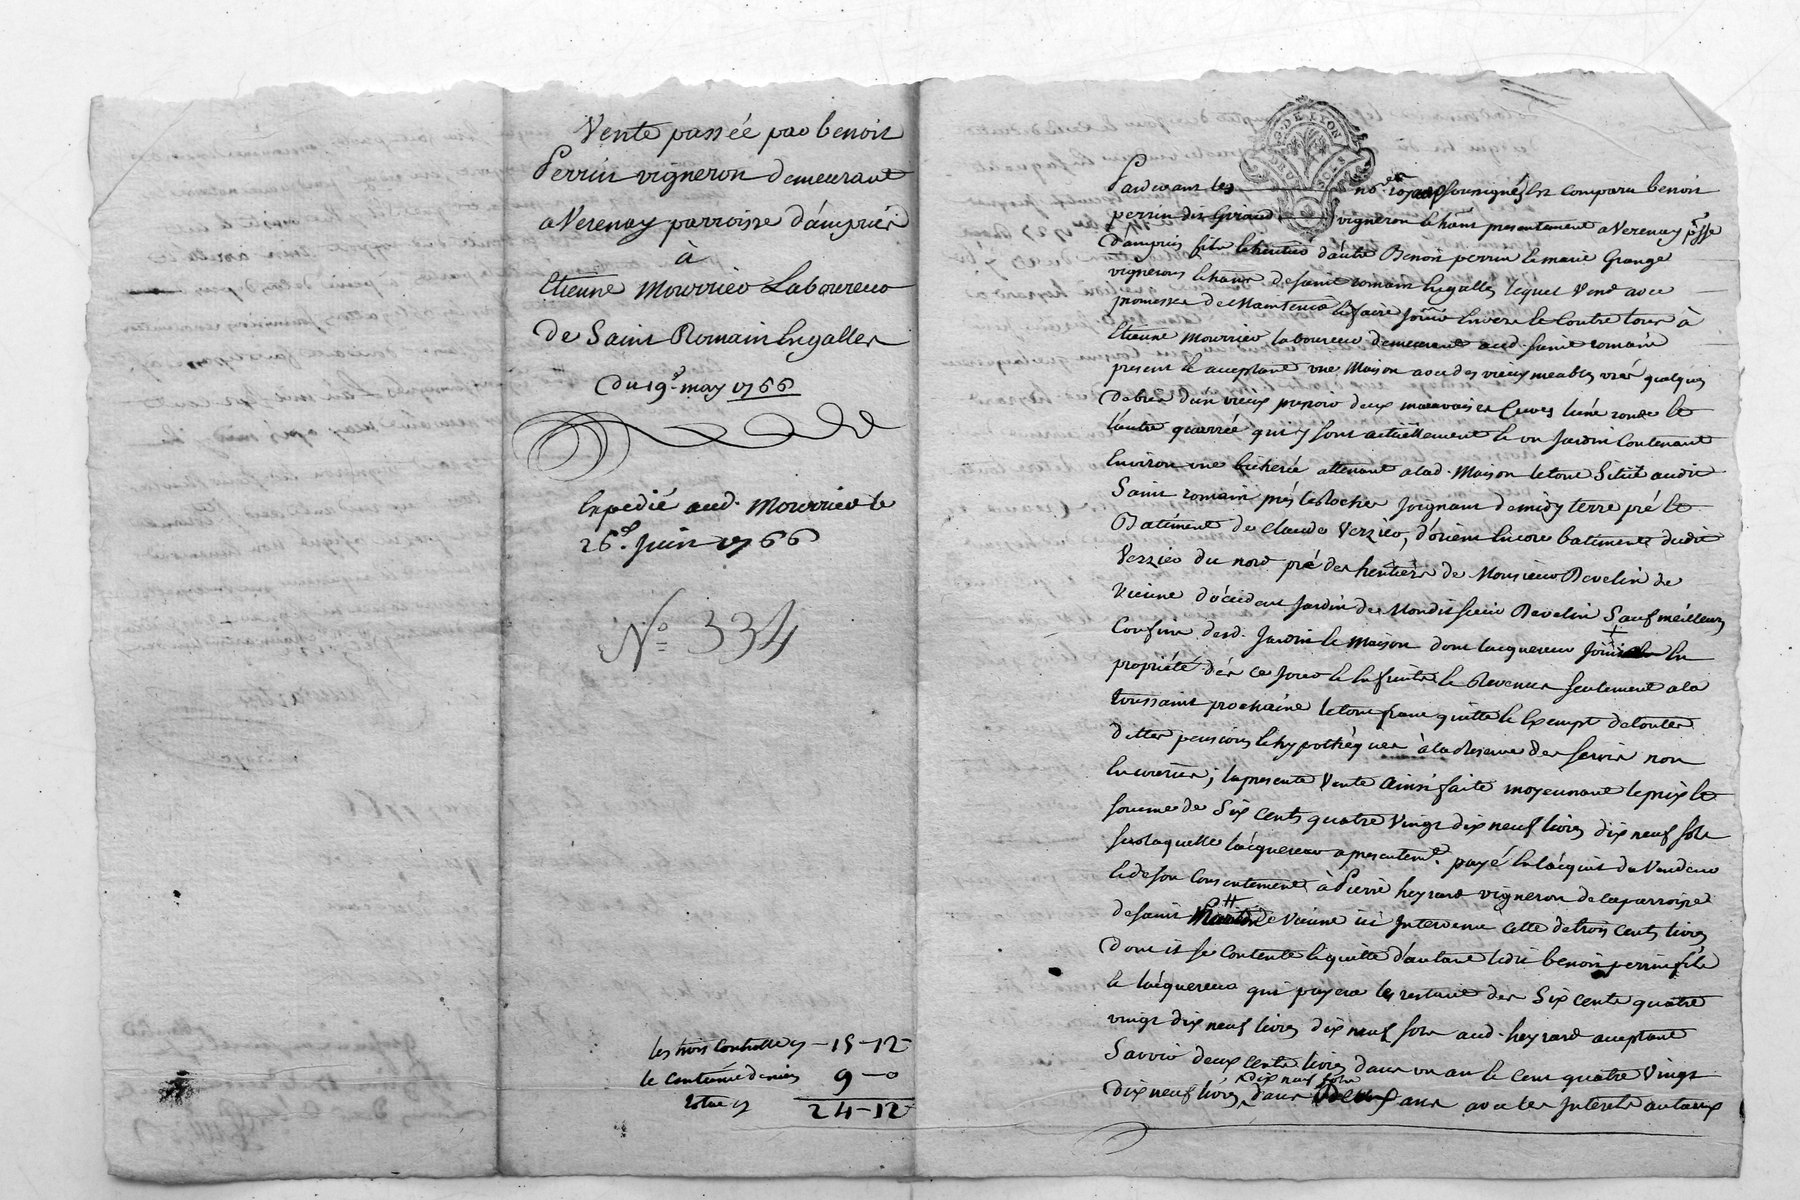 Vente passée par benoit
Perrin vigneron demeurant
a Verenay parroisse d'ampuis
à
Etienne Mourrier Laboureur
de Saint Romain Engalles
Du 19e. may 1766
Expedié aud. Mourrier le
26e. Juin 1766
No. 334
les trois Controlles 15-12
le centième denier 9-0
total 24-12
G. DE LYON
SOLS
Pardevant les nores royaux soussignés est comparu benoit
perrin dit Giraud vigneron hant presentement a Verenay psse
d'ampuis fils heritier d'autre Benoit perrin le marié Grange
vigneron hant de saint romain Engalles, lequel Vend avec
promesse de Maintenir et faire Jouir Envers et Contre tous à
Etienne Mourrier laboureur demeurant aud. saint romain
present et acceptant une Maison avec des vieux meubles usés quelques
debris d'un vieux pressoir deux mauvaises Cuves l'une ronde et
l'autre quarrée qui y sont actuellement et un Jardin Contenant
Environ une bicherée attenant a lad. Maison le tout Situé audit
Saint romain près le Rocher Joignant de midy terre pré et
Batiment de claude Verzier, d'orient Encore batiment dudit
Verzier du nord pré des heritiers de Monsieur Revelin de
Vienne d'occident Jardin de Mondit sieur Revelin Sauf meilleurs
Confins desd. Jardin et Maison dont lacquereur en
propriété dès ce Jour et En fruits et Revenus seulement a la
toussaint prochaine le tout franc quitte et Exempt de toutes
dettes pensions et hypothèques à la Reserve des servis non
En arrerages; la presente Vente ainsi faite moyennant le prix et
somme de Six cents quatre vingt dix neuf livres dix neuf sols
sur laquelle l'acquereur a presentemt. payé En l'acquit du Vendeur
et de son Consentement à Pierre heyrard vigneron de la parroisse
de saint de Vienne ici Intervenu Cette de trois cents livres
dont il se Contente et quitte d'autant ledit benoit perrin fils
et l'acquereur qui payera les restant des Six cents quatre
vingt dix neuf livres dix neuf sols aud. heyrard acceptant
Savoir deux cents livres dans un an et cent quatre vingt
dix neuf livres dix neuf sols dans deux ans avec les Interets au taux